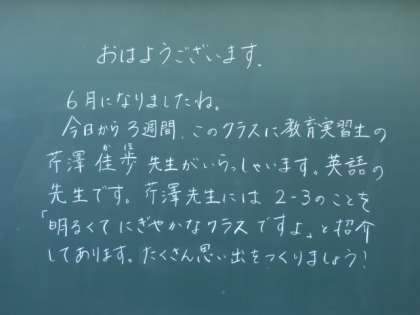 おはようございます.
6月になりましたね。
今日から3週間、このクラスに教育実習生の
芹澤 佳歩 先生がいらっしゃいます。英語の
先生です。芹澤先生には 2-3のことを
「明るくてにぎやかなクラスですよ」と紹介
してあります。たくさん思い出をつくりましょう!